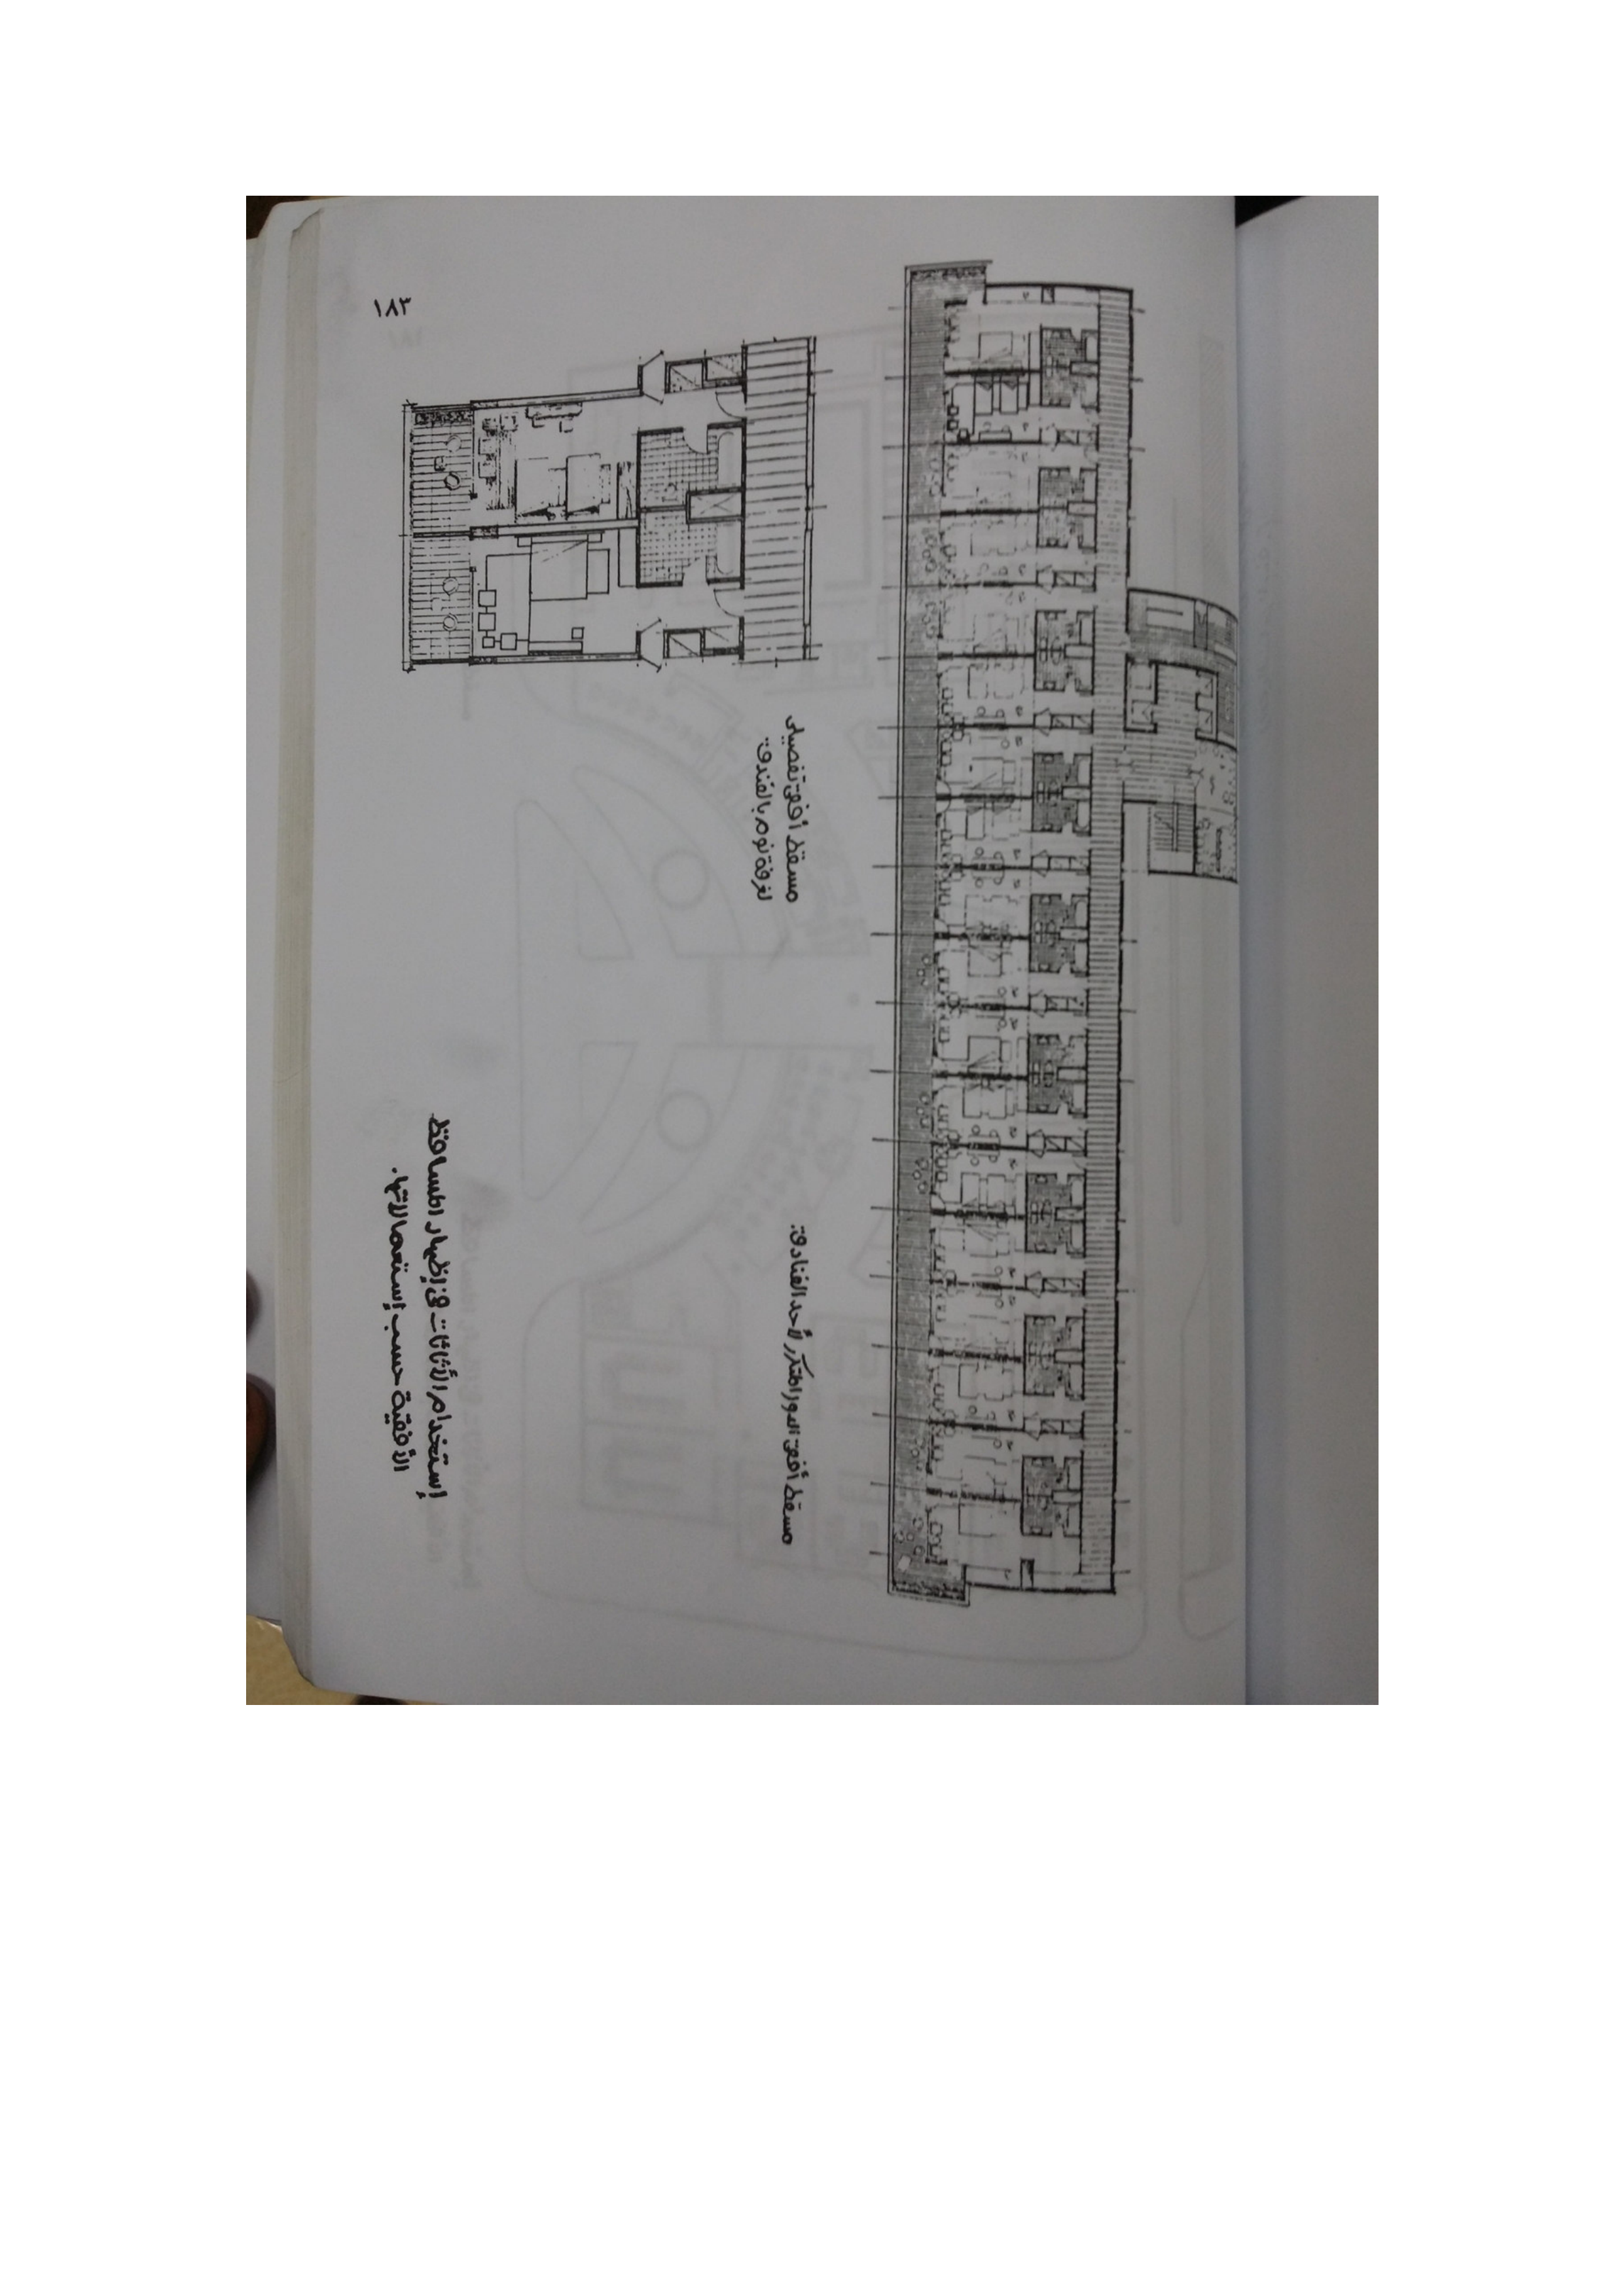 مسقط أفقى الدور المتكرر لأحد الفنادق.
مسقط أفقى تفصيلى
لغرفة نوم بالفندق
إستخدام الأثاث فى إظهار المساقط
الأفقية حسب إستعمالاتها.
١٨٣